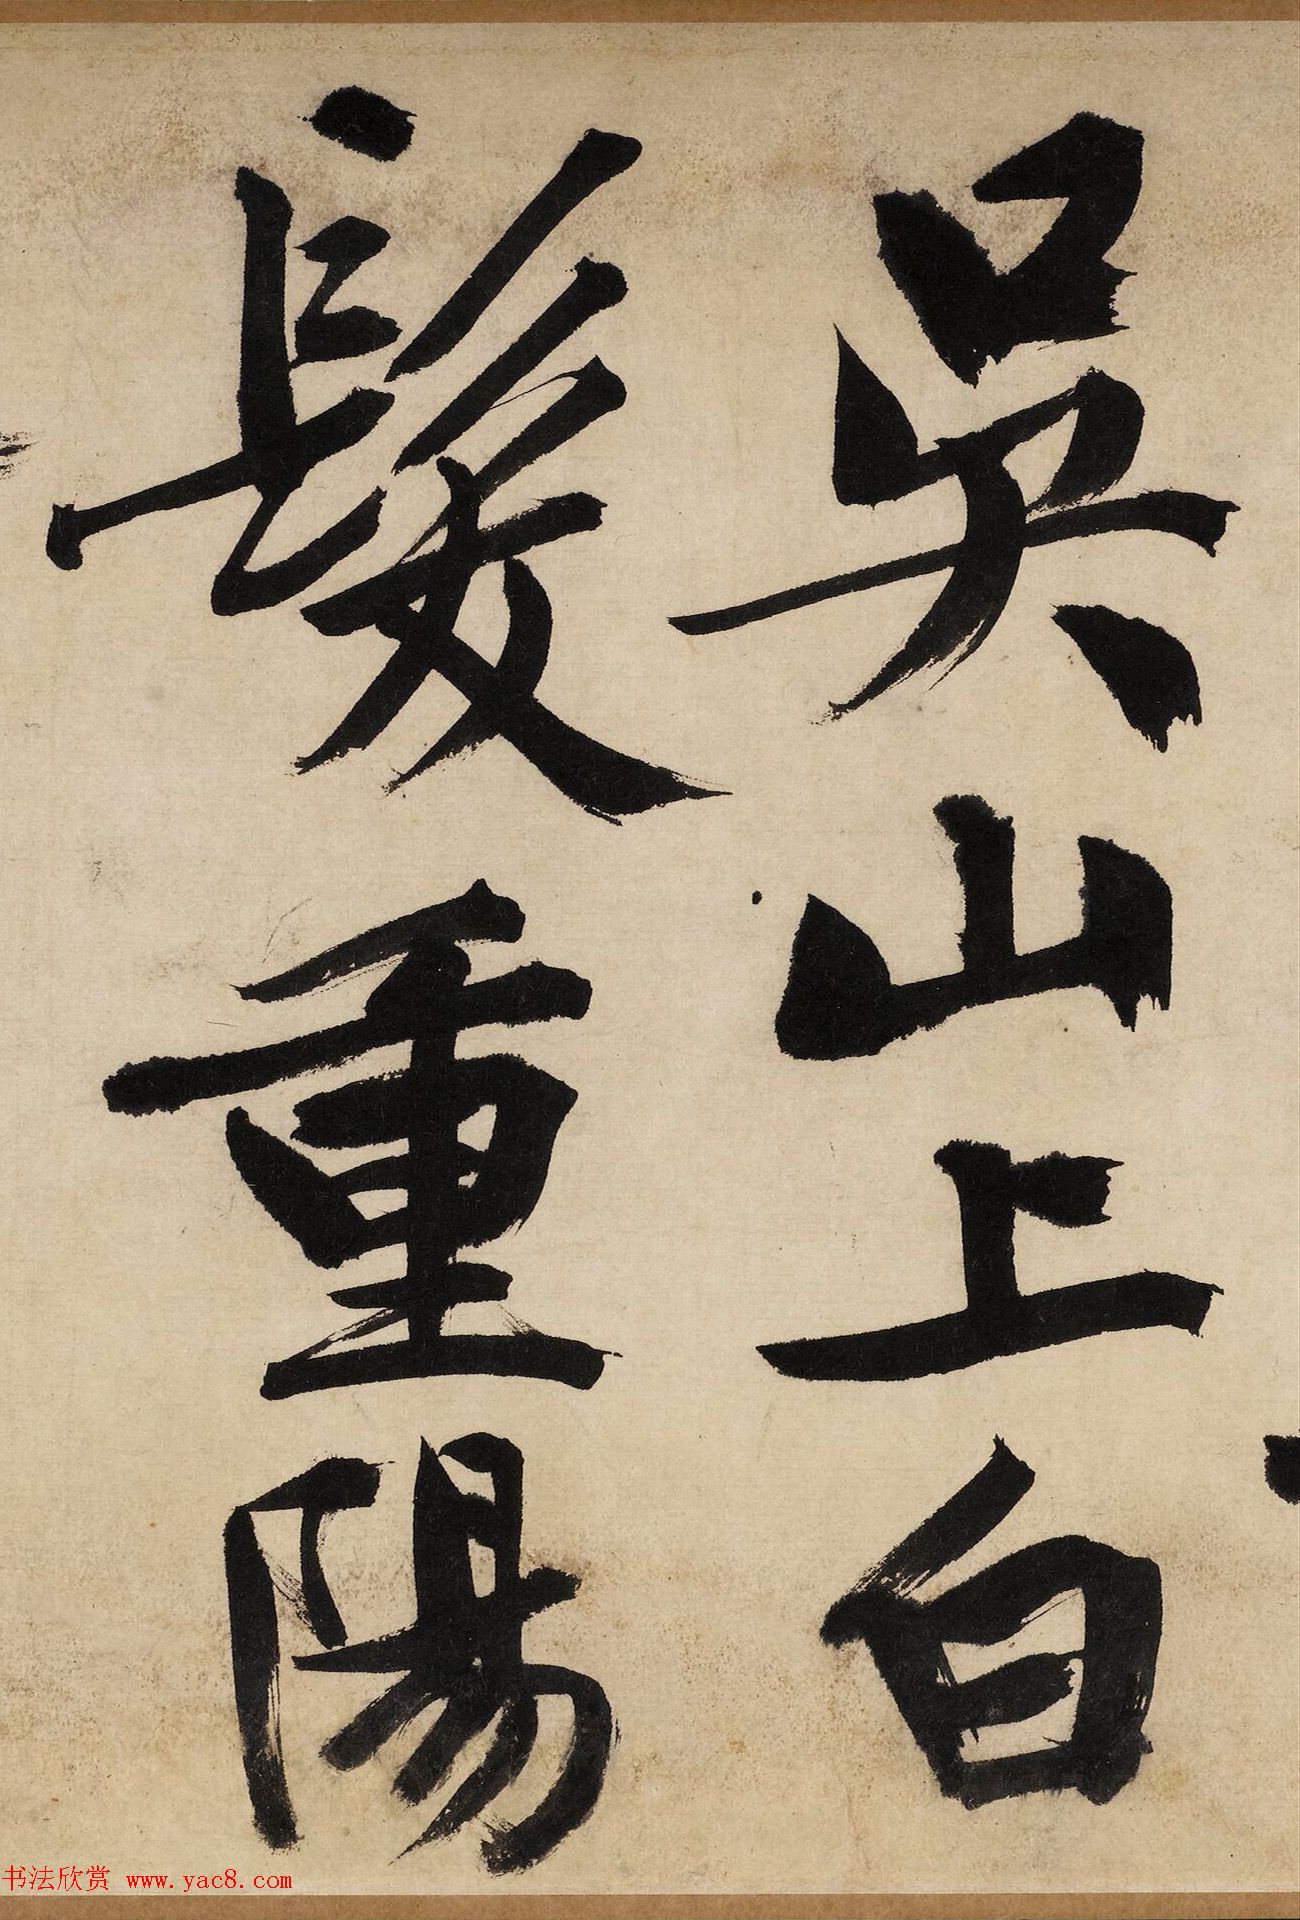 吳山上白
髮重陽
书法欣赏 www.yac8.com